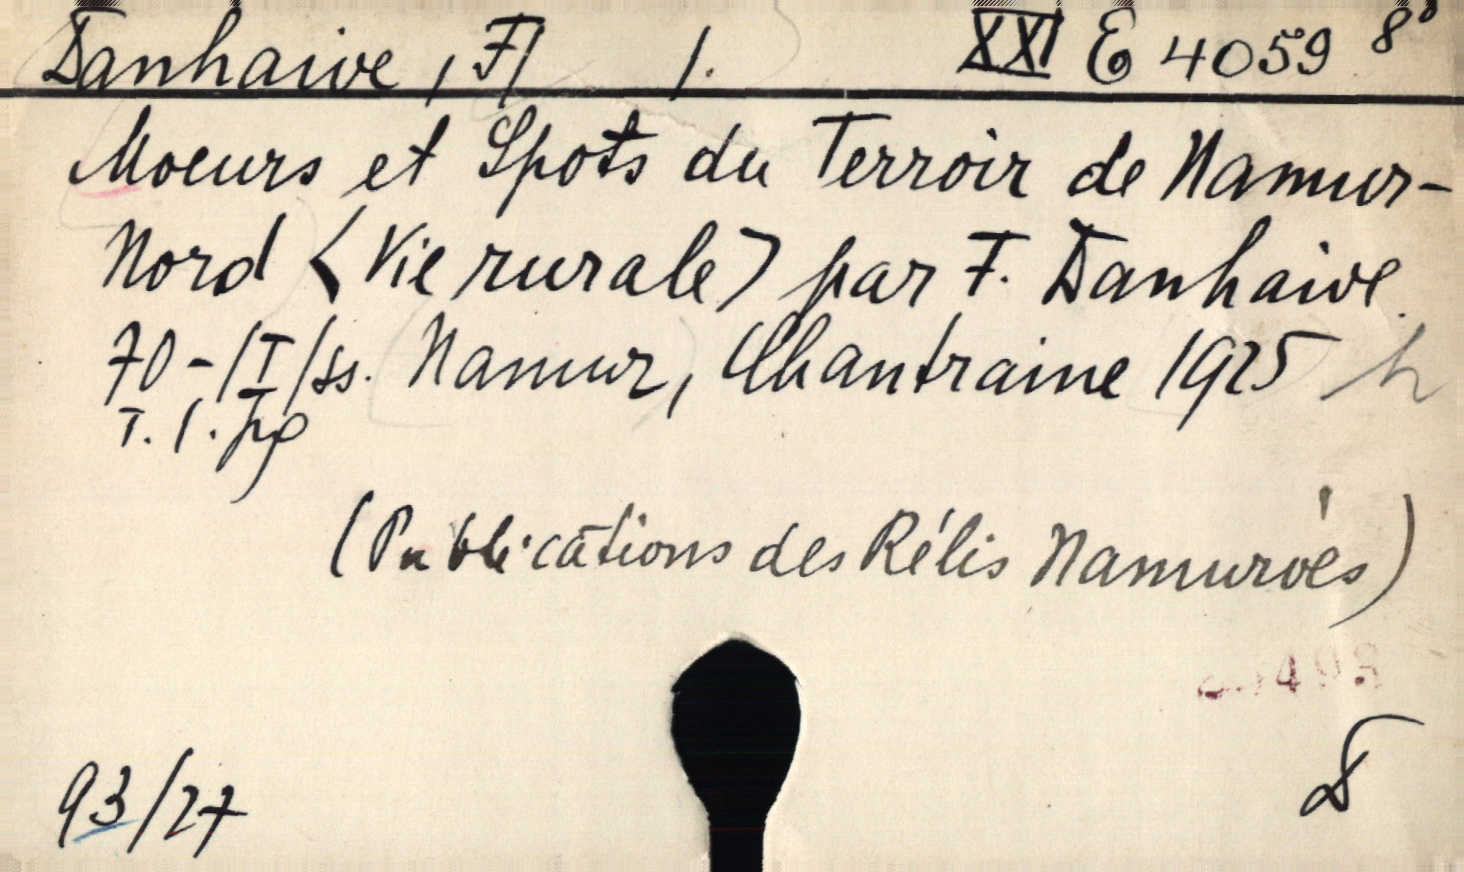 Danhaive, F/ 1. XXI E 4059 8°
Moeurs et Spots du Terroir de Namur-
Nord <Vie rurale> par F. Danhaive.
70 - /I/ ss. Namur, Chantraine 1925
T. 1. pg
(Publications des Rélis Namurwès)
93/27